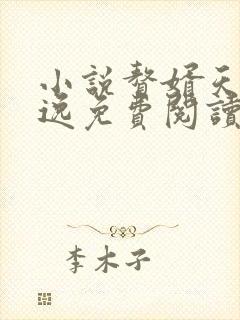 小說贅婿天
逸免費閱讀
李木子